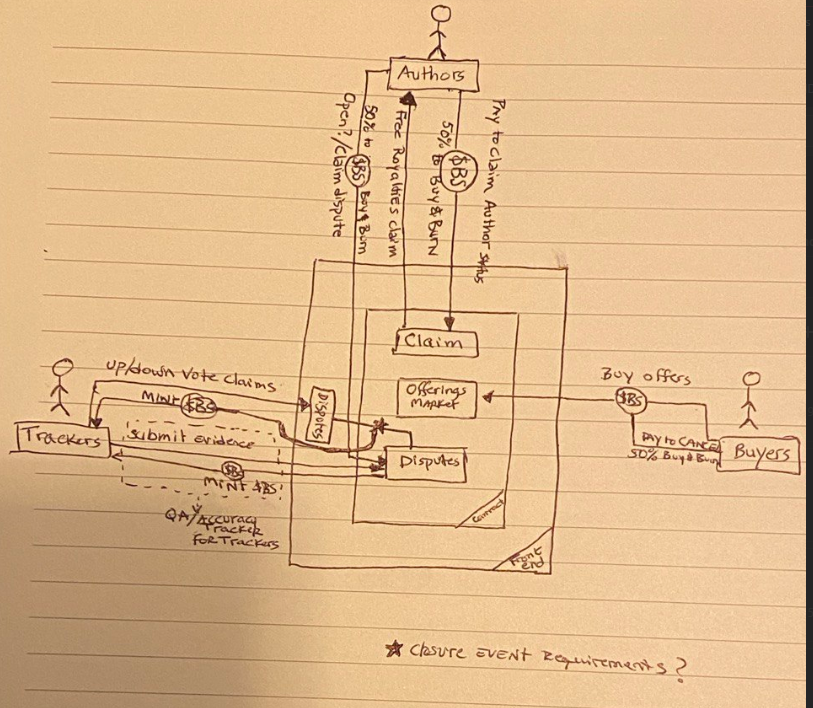 Authors
Pay to claim Author status
50% to Buy & Burn
$BS
Free Royalties claim
50% to Buy & Burn
$BS
Open?/claim dispute
Claim
Offerings
Market
Disputes
Disputes
Contract
Front
end
up/down vote claims
MINT $BS
Trackers
submit evidence
$BS
MINT $BS
QA/Accuracy
Tracker
FOR Trackers
Buy offers
$BS
PAY to CANCEL
50% Buy & Burn
Buyers
★ Closure EVENT Requirements?